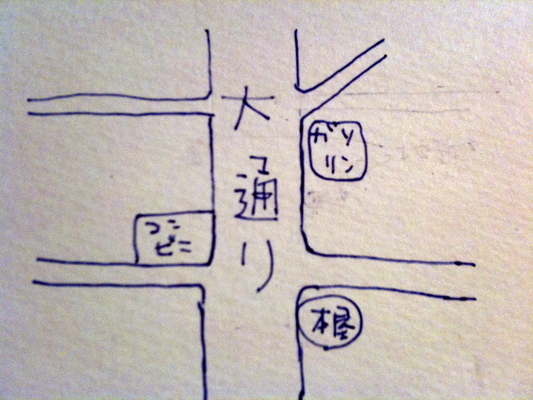 大通り
ガソ
リン
コン
ビニ
本屋